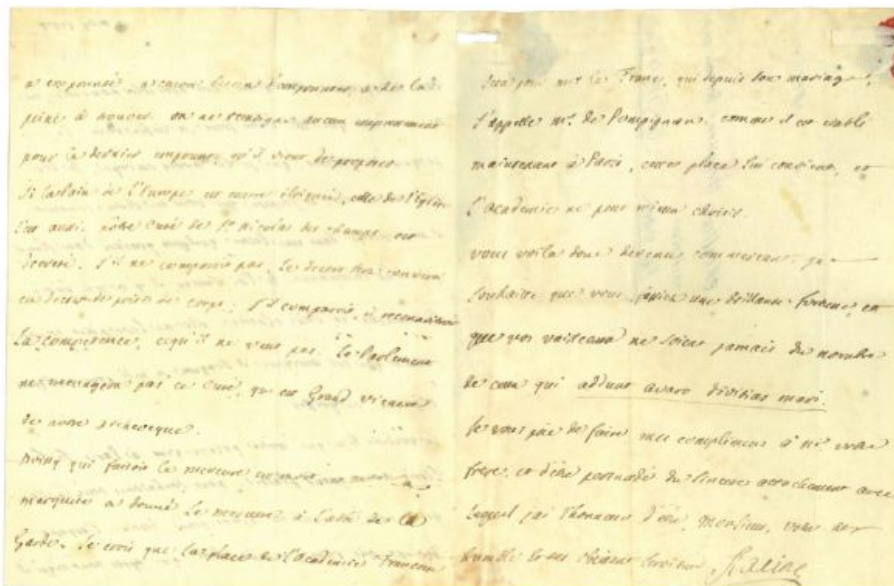 a emprunté, a encore besoin d'emprunter, a de la
peine à trouver. on ne remarque aucun empressement
pour le dernier emprunt qu'il vient de proposer.
Si la paix de l'Europe est encore éloignée, celle de l'Eglise
l'est aussi. nôtre Curé de St. nicolas des champs est
décrété. s'il ne comparoit pas, le decret sera converti
en decret de prise de corps: s'il comparoit, il reconnoitra
la competence, ce qu'il ne veut pas. Le Parlement
ne menagera pas ce Curé, qui est Grand vicaire
de notre archeveque.
Boissy qui faisoit le mercure est mort
marquise a donné le mercure à l'abbé de la
Garde. Je crois que la place de l'academie Françoise
sera pour mr. le Franc, qui depuis son mariage
s'appelle mr. de Pompignan. comme il est établi
maintenant à Paris, cette place lui convient, et
l'Academie ne peut mieux choisir.
vous voila donc devenu commerçant. je
souhaite que vous fassiez une brillante fortune, et
que vos vaisseaux ne soient jamais du nombre
de ceux qui addunt avaro divitias mari.
Je vous prie de faire mes complimens à mr. votre
frere, et d'être persuadé du sincere attachement avec
lequel j'ai l'honneur d'être, monsieur, votre tres
humble et tres obeissant serviteur, Racine